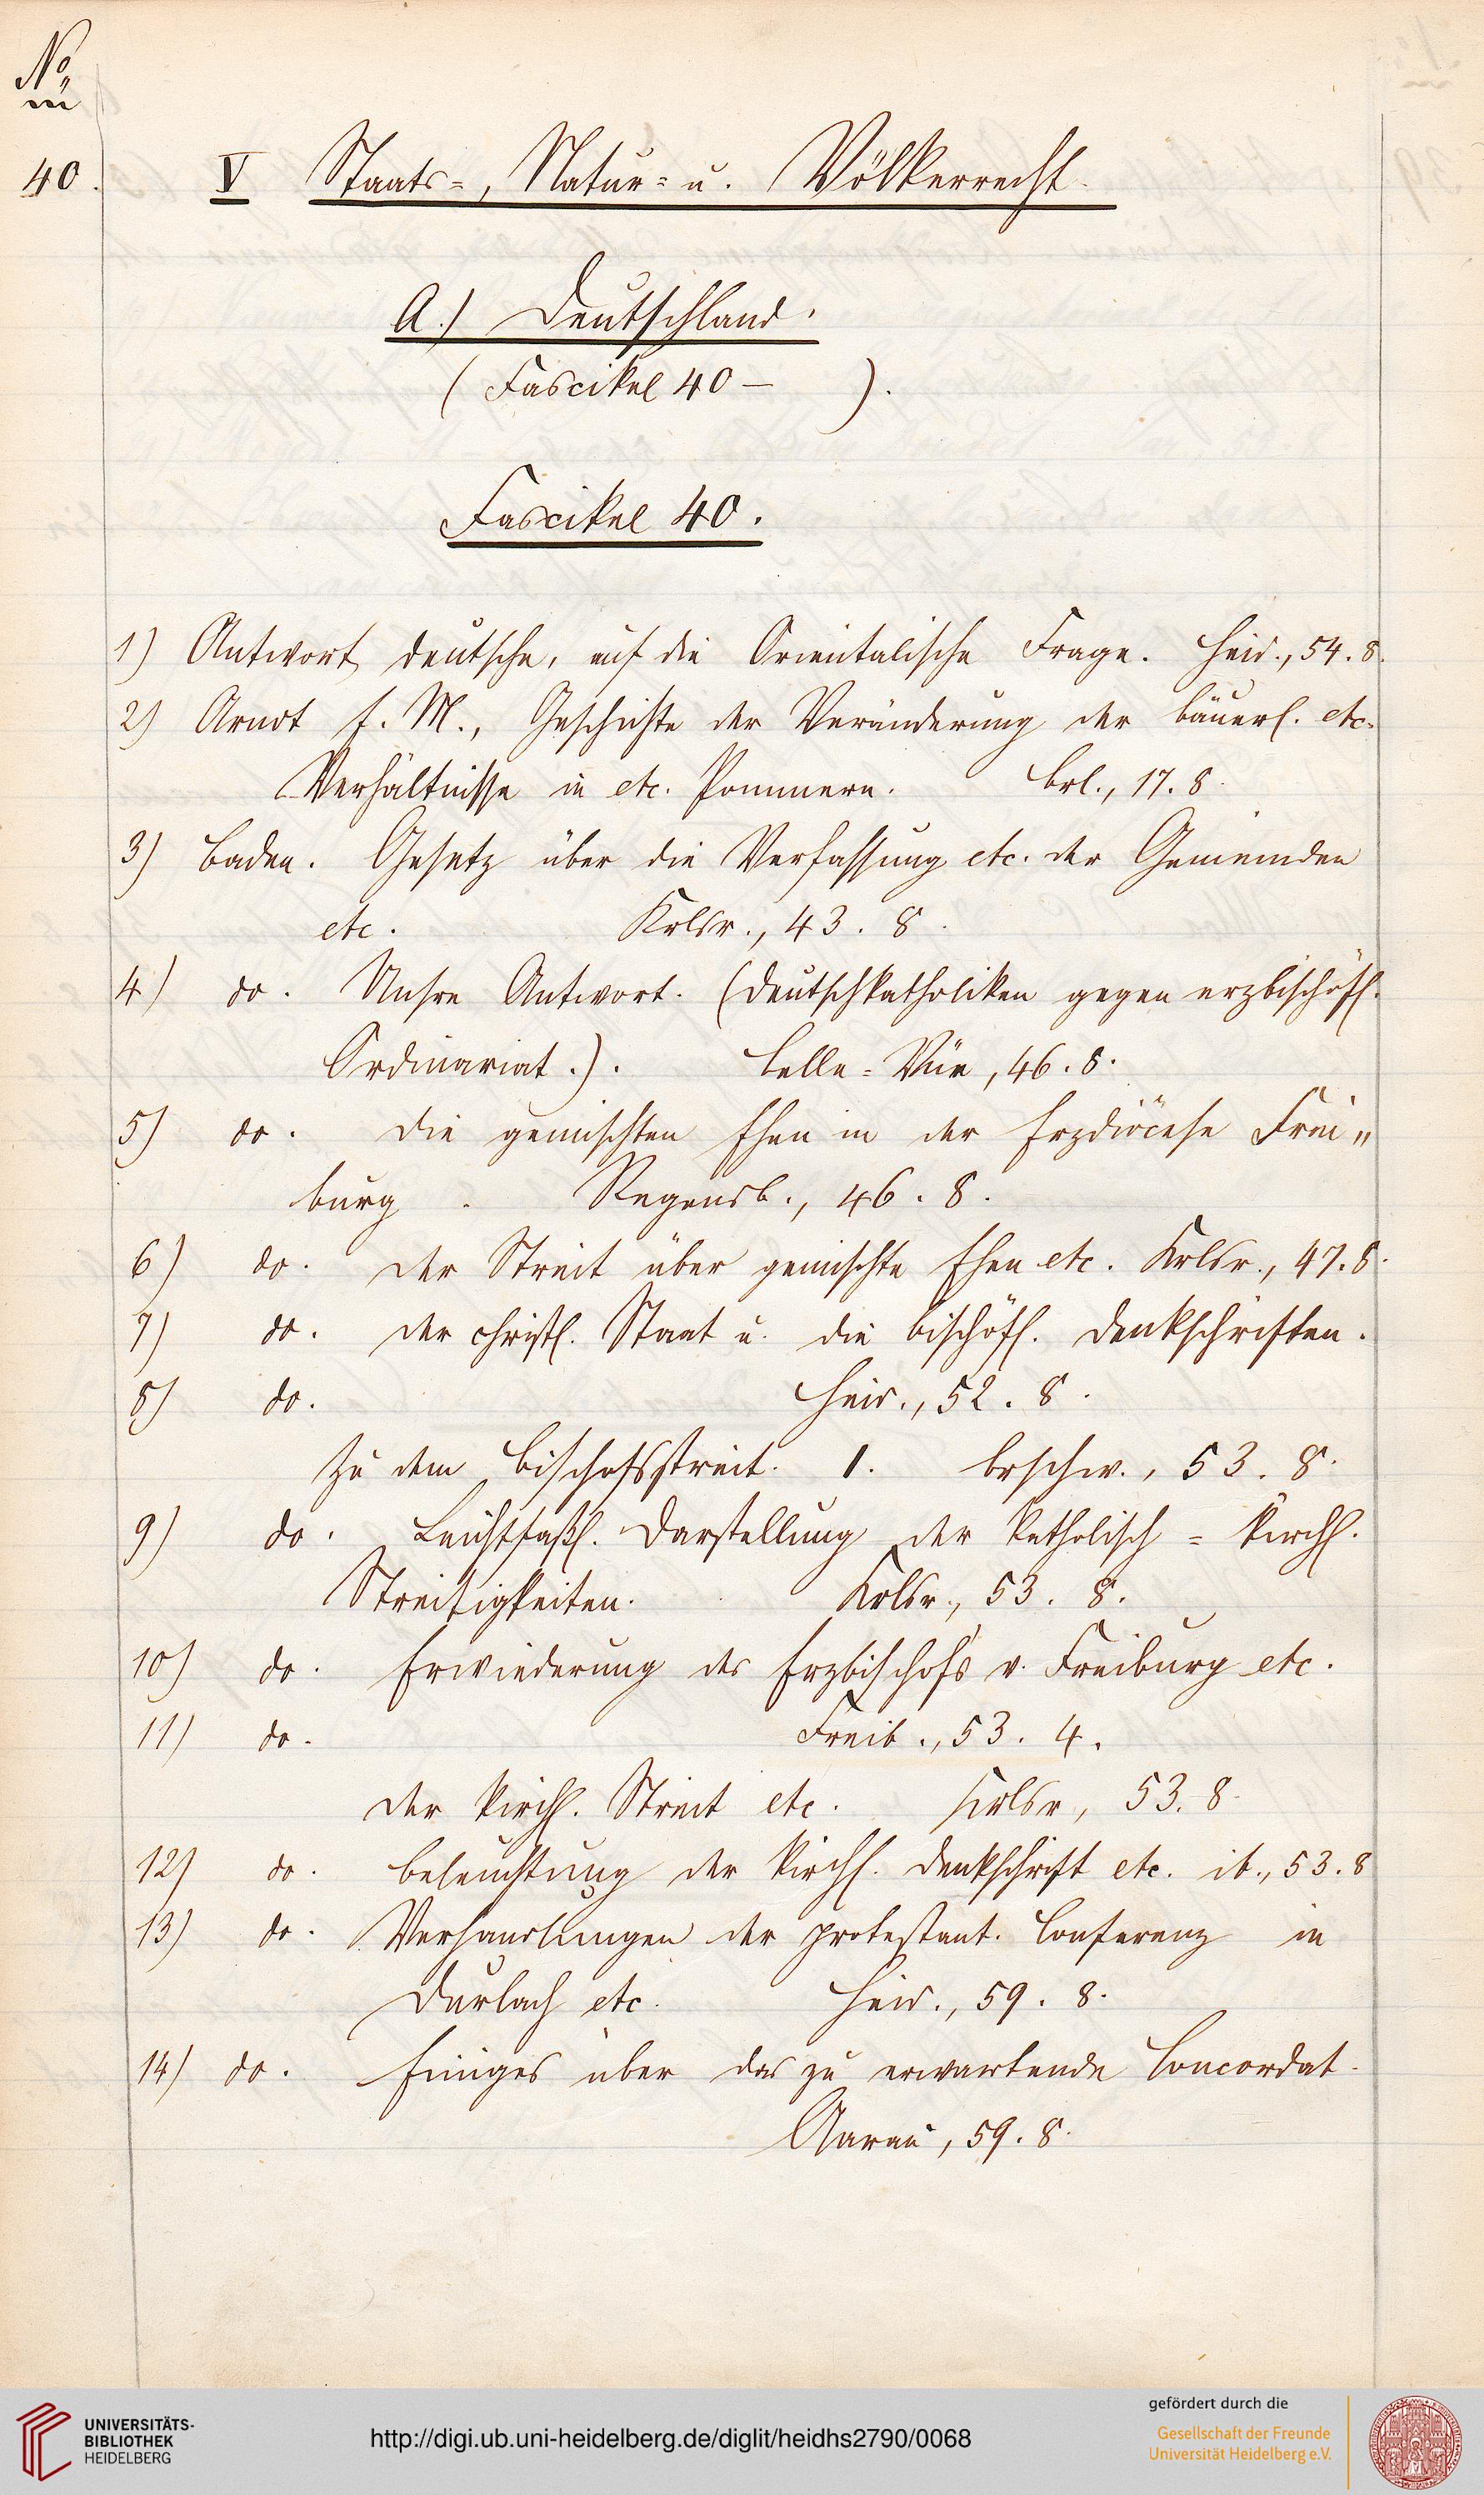 No
40. V Staats-, Natur- u. Völkerrecht.
A.) Deutschland.
(Fascikel 40 — ).
Fascikel 40.
1) Antwort, deutsche, auf die Orientalische Frage. Heid., 54. 8.
2) Arndt E. M., Geschichte der Veränderung der bäuerl. etc.
Verhältnisse in etc. Pommern. Brl., 17. 8.
3) Baden. Gesetz über die Verfassung etc. der Gemeinden
etc. Krlsr., 43. 8.
4) do. Unsre Antwort. (Deutschkatholiken gegen erzbischöfl.
Ordinariat.). Belle-Vüe, 46. 8.
5) do. Die gemischten Ehen in der Erzdiöcese Frei„
burg. Regensb., 46. 8.
6) do. Der Streit über gemischte Ehen etc. Krlsr., 47. 8.
7) do. Der christl. Staat u. die bischöfl. Denkschriften.
8) do. Heid., 52. 8.
Zu dem Bischofsstreit. 1. Brschw., 53. 8.
9) do. Leichtfaßl. Darstellung der katholisch-kirchl.
Streitigkeiten. Krlsr., 53. 8.
10) do. Erwiederung des Erzbischofs v. Freiburg etc.
11) do. Freib., 53. 4.
Der kirchl. Streit etc. Krlsr, 53. 8.
12) do. Beleuchtung der kirchl. Denkschrift etc. ib., 53. 8
13) do. Verhandlungen der protestant. Conferenz in
Durlach etc. Heid., 59. 8.
14) do. Einiges über das zu erwartende Concordat.
Aarau, 59. 8.
UNIVERSITÄTS-
BIBLIOTHEK
HEIDELBERG
http://digi.ub.uni-heidelberg.de/diglit/heidhs2790/0068
gefördert durch die
Gesellschaft der Freunde
Universität Heidelberg e.V.